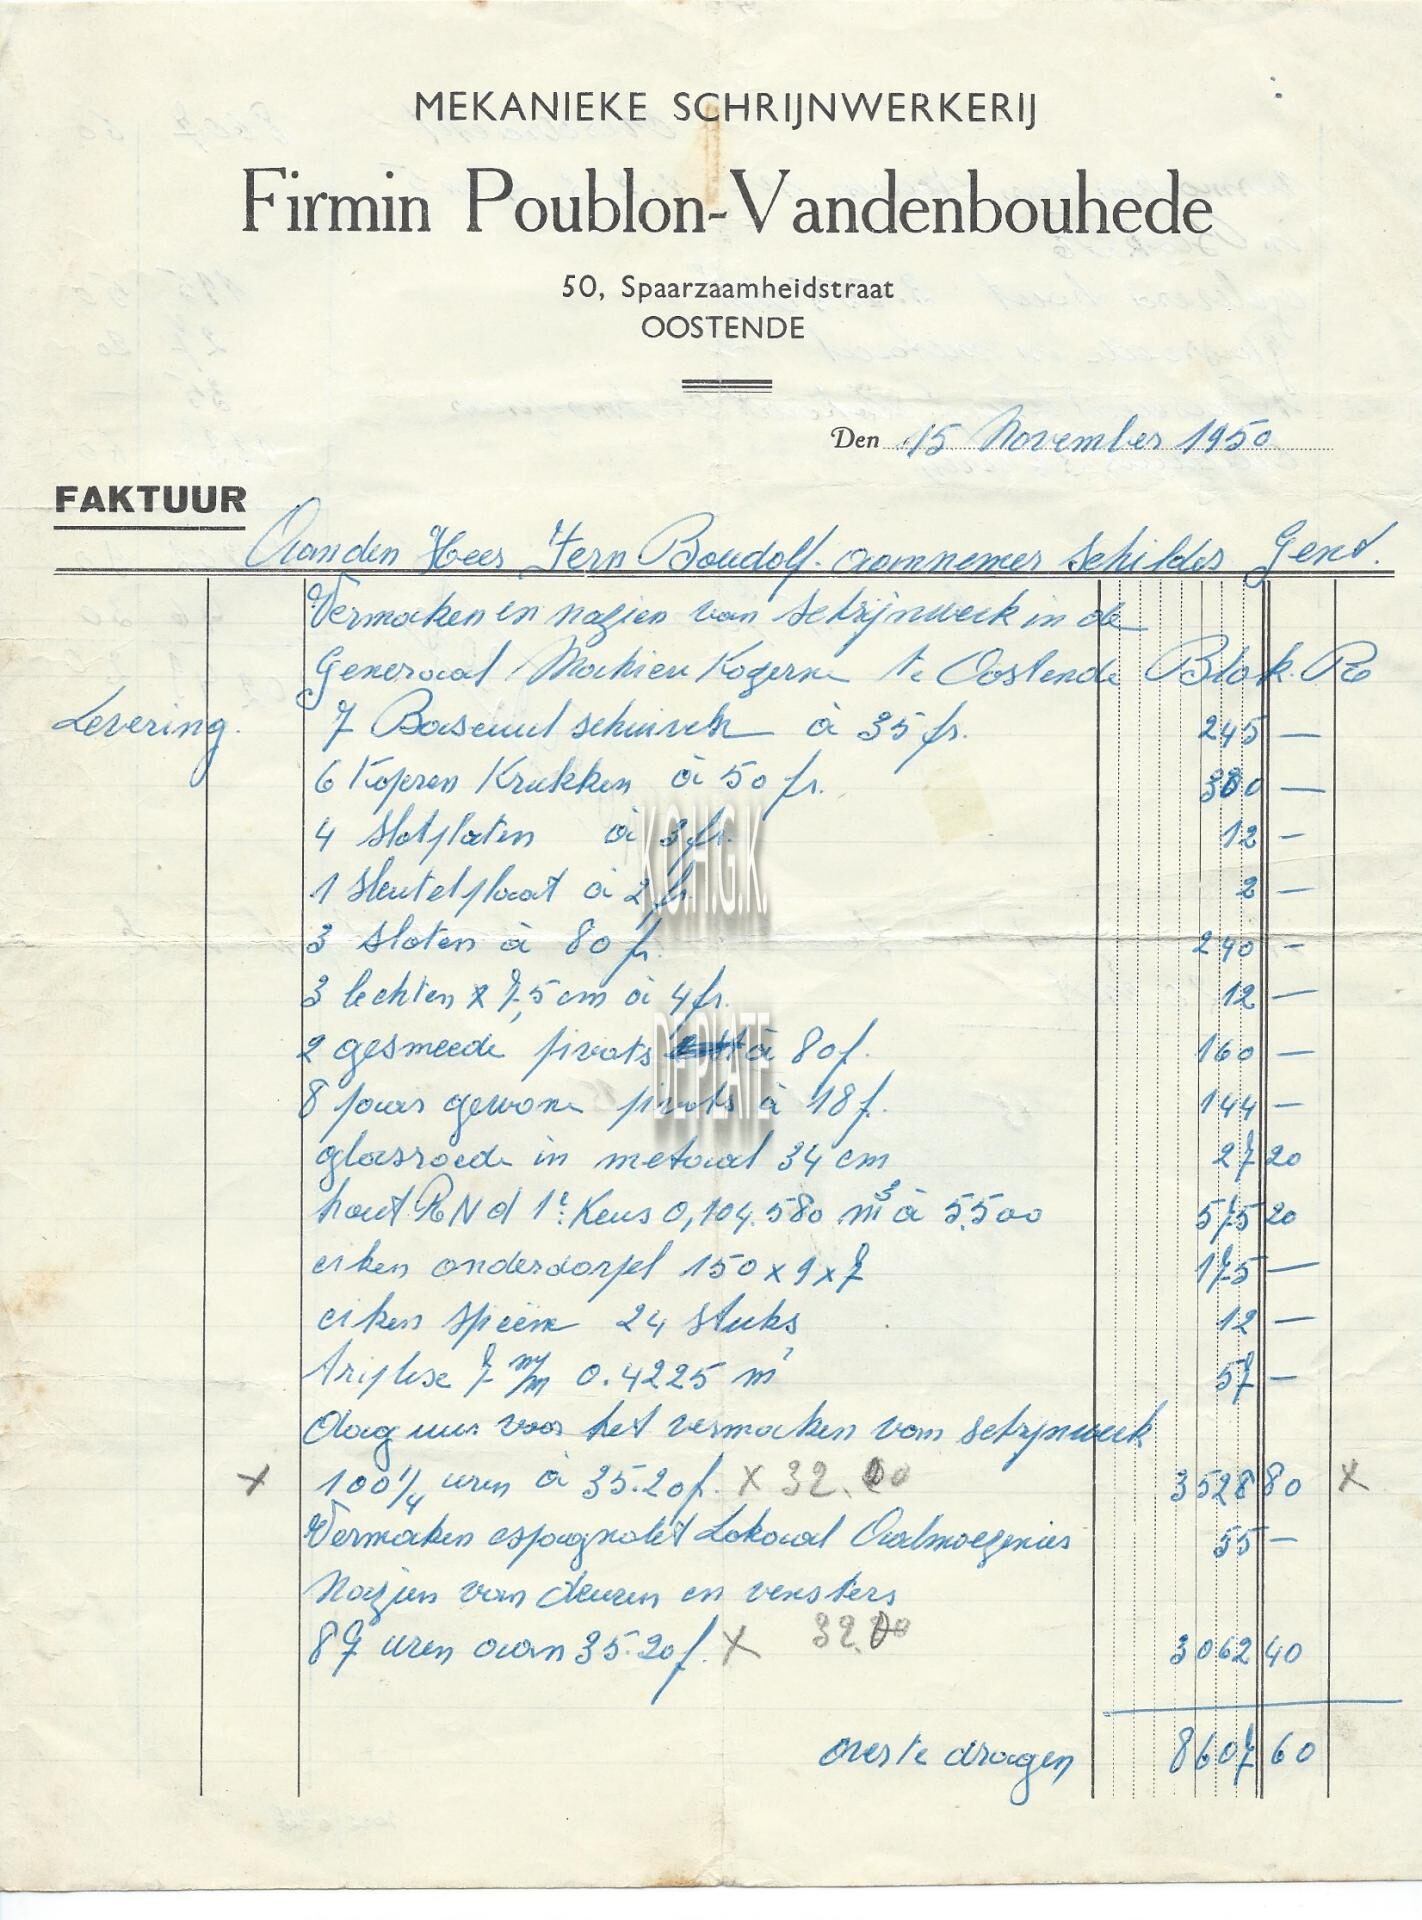 MEKANIEKE SCHRIJNWERKERIJ
Firmin Poublon-Vandenbouhede
50, Spaarzaamheidstraat
OOSTENDE
Den 15 November 1950
FAKTUUR
Aan den Heer Fern Boudolf. aannemer schilder Gent.
Vermaken en nazien van schrijnwerk in de
Generaal Mahieu Kazerne te Oostende Blok.
Levering. 7 schuivers à 35 fr. 245 —
6 Kopren Krukken à 50 fr. 300 —
4 slotplaten à 3 fr. 12 —
1 sleutelplaat à 2 fr. 2 —
3 sloten à 80 fr. 240 —
3 lechten x 7,5 cm à 4 fr. 12 —
2 gesmeede pivots à 80 f. 160 —
8 paar gewone pivots à 18 f. 144 —
glasroede in metaal 34 cm 27 20
hout R N d 1e Keus 0,104.580 m³ à 5.500 575 20
eiken onderdorpel 150 x 9 x 7 175 —
eiken spieën 24 stuks 12 —
triplex 7 m/m 0.4225 m² 57 —
dag uur voor het vermaken van schrijnwerk
x 100 1/4 uren à 35.20 f. x 32. 3528 80 x
Vermaken espagnolet Lokaal Aalmoezenier 55 —
Nazien van deuren en vensters
87 uren aan 35.20 f. x 32. 3062 40
over te dragen 8607 60
K.O.H.G.K.
DE PLATE